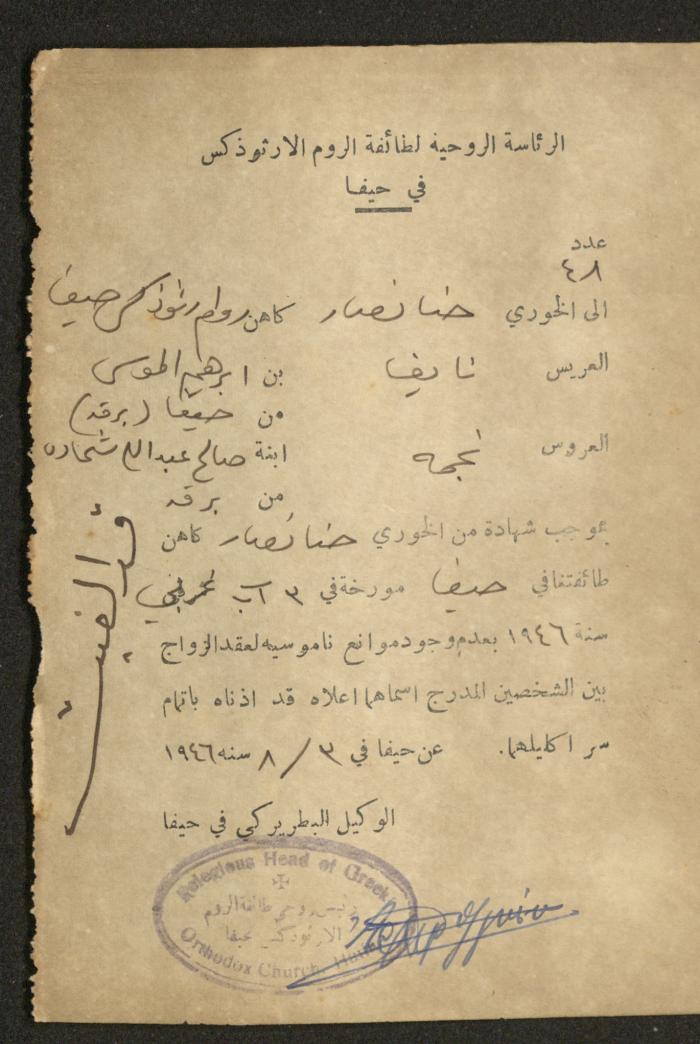 الرئاسة الروحية لطائفة الروم الارثوذكس
في حيفا
عدد
٤٨
الى الخوري حنا نصار كاهن روم ارثوذكس حيفا
العريس نايف بن ابرهيم الموسى
من حيفا (برقه)
العروس نجمه ابنة صالح عبدالله شحاده
من برقه
بموجب شهادة من الخوري حنا نصار كاهن
طائفتنا في حيفا مورخة في ٣ آب
سنة ١٩٤٦ بعدم وجود موانع ناموسيه لعقد الزواج
بين الشخصين المدرج اسماهما اعلاه قد اذناه باتمام
سر اكليلهما. عن حيفا في ٣ / ٨ سنه ١٩٤٦
الوكيل البطريركي في حيفا
Relegious Head of Greek
رئيس روحي طائفة الروم
الارثوذكس حيفا
Orthodox Church, Haifa